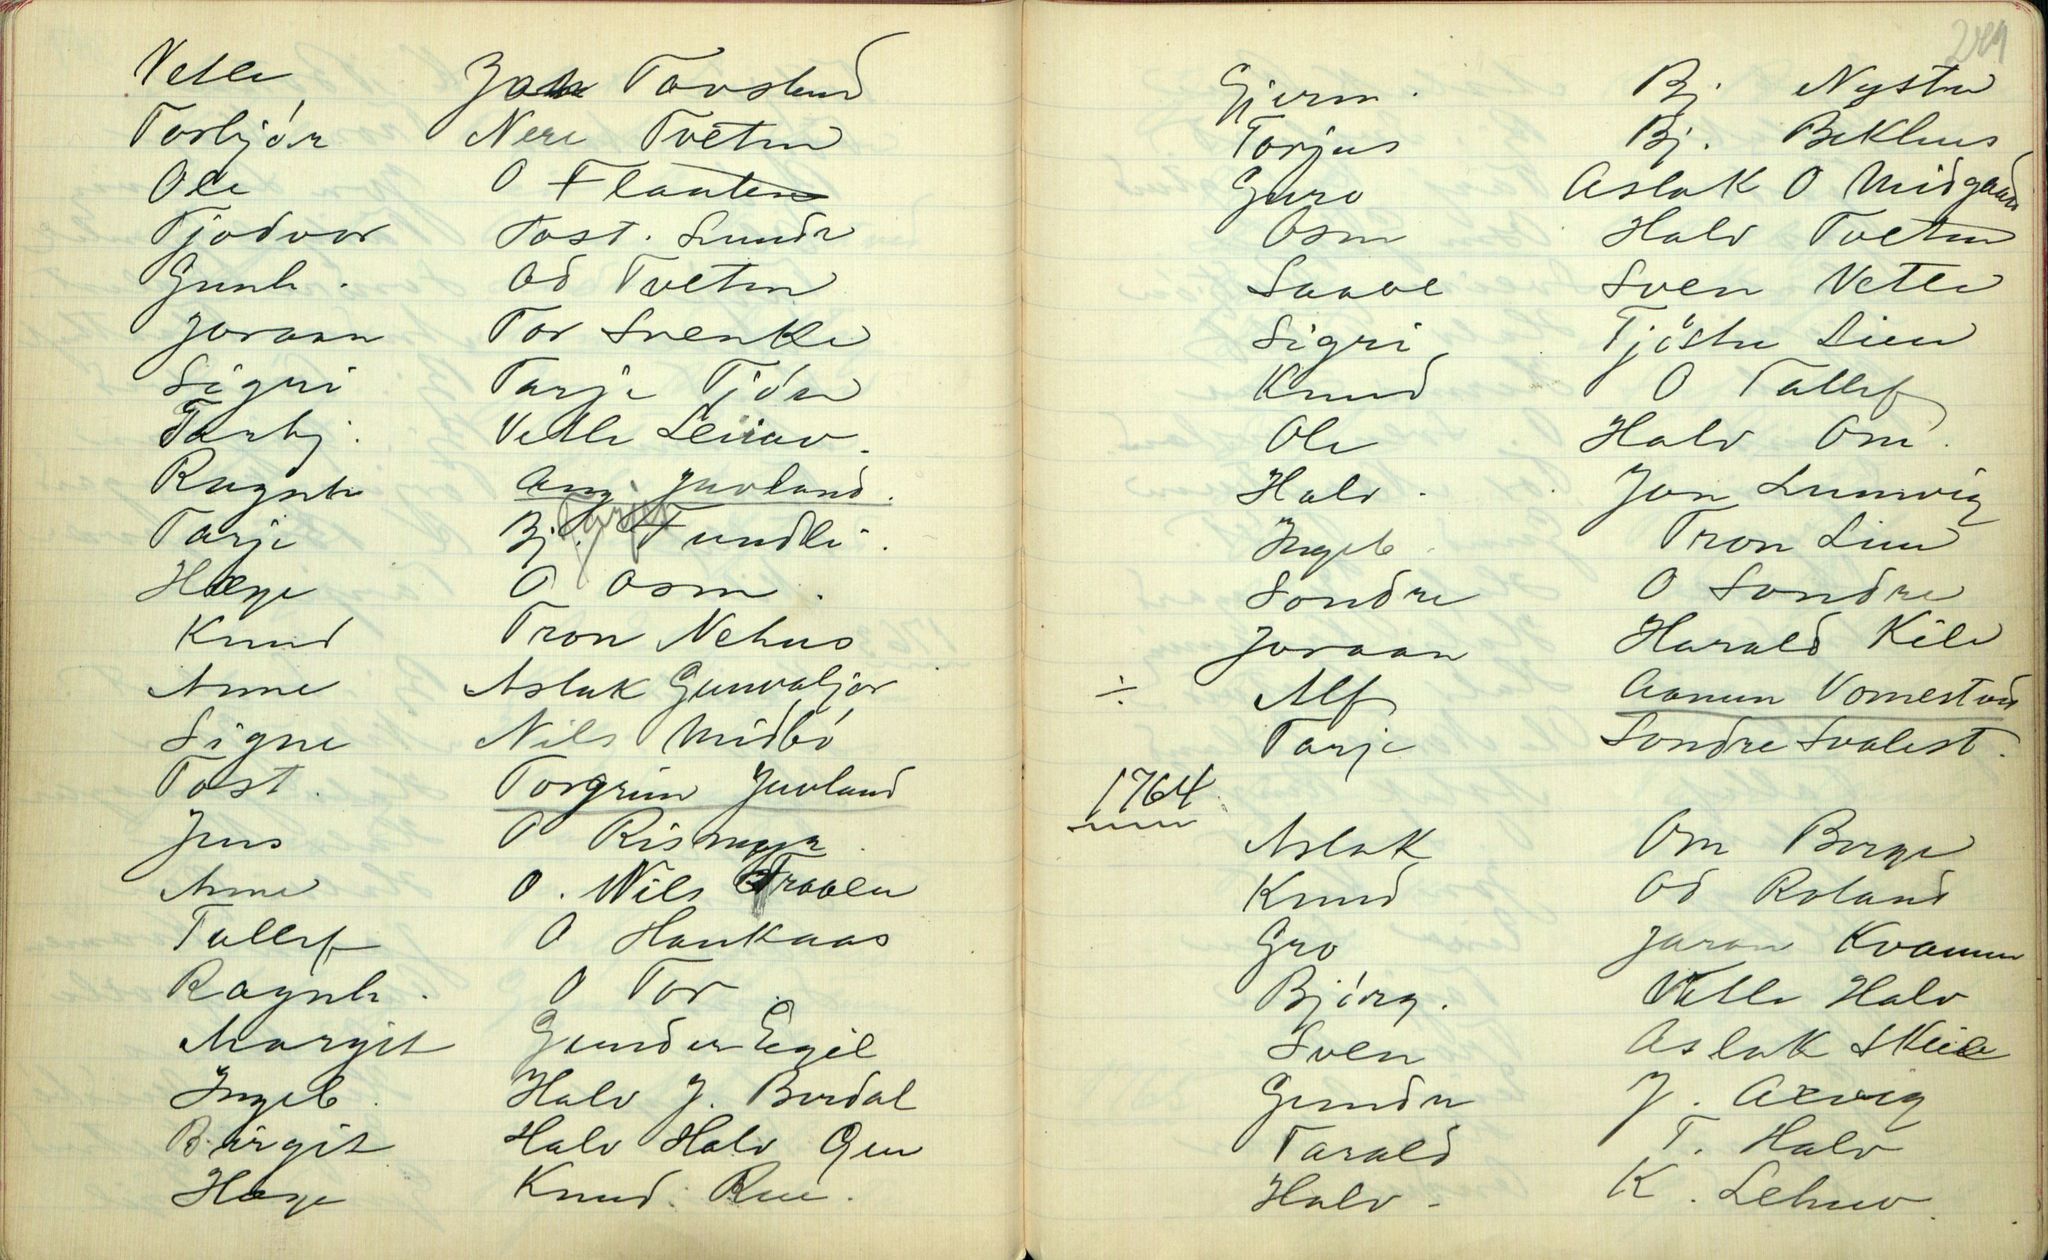 Vetle Jon Tovslund
Torbjör Nere Tveten
Ole O Flaaten
Tjodvor Tost. Sundr
Gunh. Od Tveten
Joraan Tor Svenke
Sigri Tarje Tjön
Torbj. Vetle Leirav
Ragnh Juvland.
Tarje Bj. Tarjei Fundli.
Hæge O Osm.
Knud Tron Nehus
Anne Aslak Gunvaljor
Signe Nils Midbö
Tost. Torgrim Juvland
Jens O Rismyr.
Anne O. Nils Traaen
Tallef O Haukaas
Ragnh. O Tor
Margit Gunder Egil
Ingeb. Halv J. Berdal
Birgit Halv Halv Gru
Hæge Knud. Rue.
241
Gjerm. Bj. Nystu
Torjus Bj. Bekhus
Guro Aslak O Midgaard
Osm Halv Tveten
Saave Sven Vetle
Sigri Tjöstu Lien
Knud O Tallef
Ole Halv Om.
Halv. Jon Lunvig
Ingeb. Tron Lien
Sondre O Sondre
Joraan Harald Kile
÷ Alf Aanun Vomestad
Tarje Sondre Svalest.
1764
Aslak Om Berge
Knud Od Roland
Gro Jaran Kvamen
Björg. Vetle Halv
Sven Aslak Skeie
Gundr J. Arvig
Tarald T. Halv
Halv. K. Lehuv.